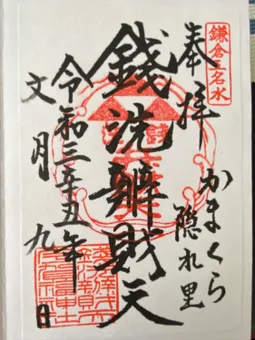 鎌倉五名水
奉拝
かまくら
隠れ里
銭洗辨財天
令和三辛丑年
文月九日